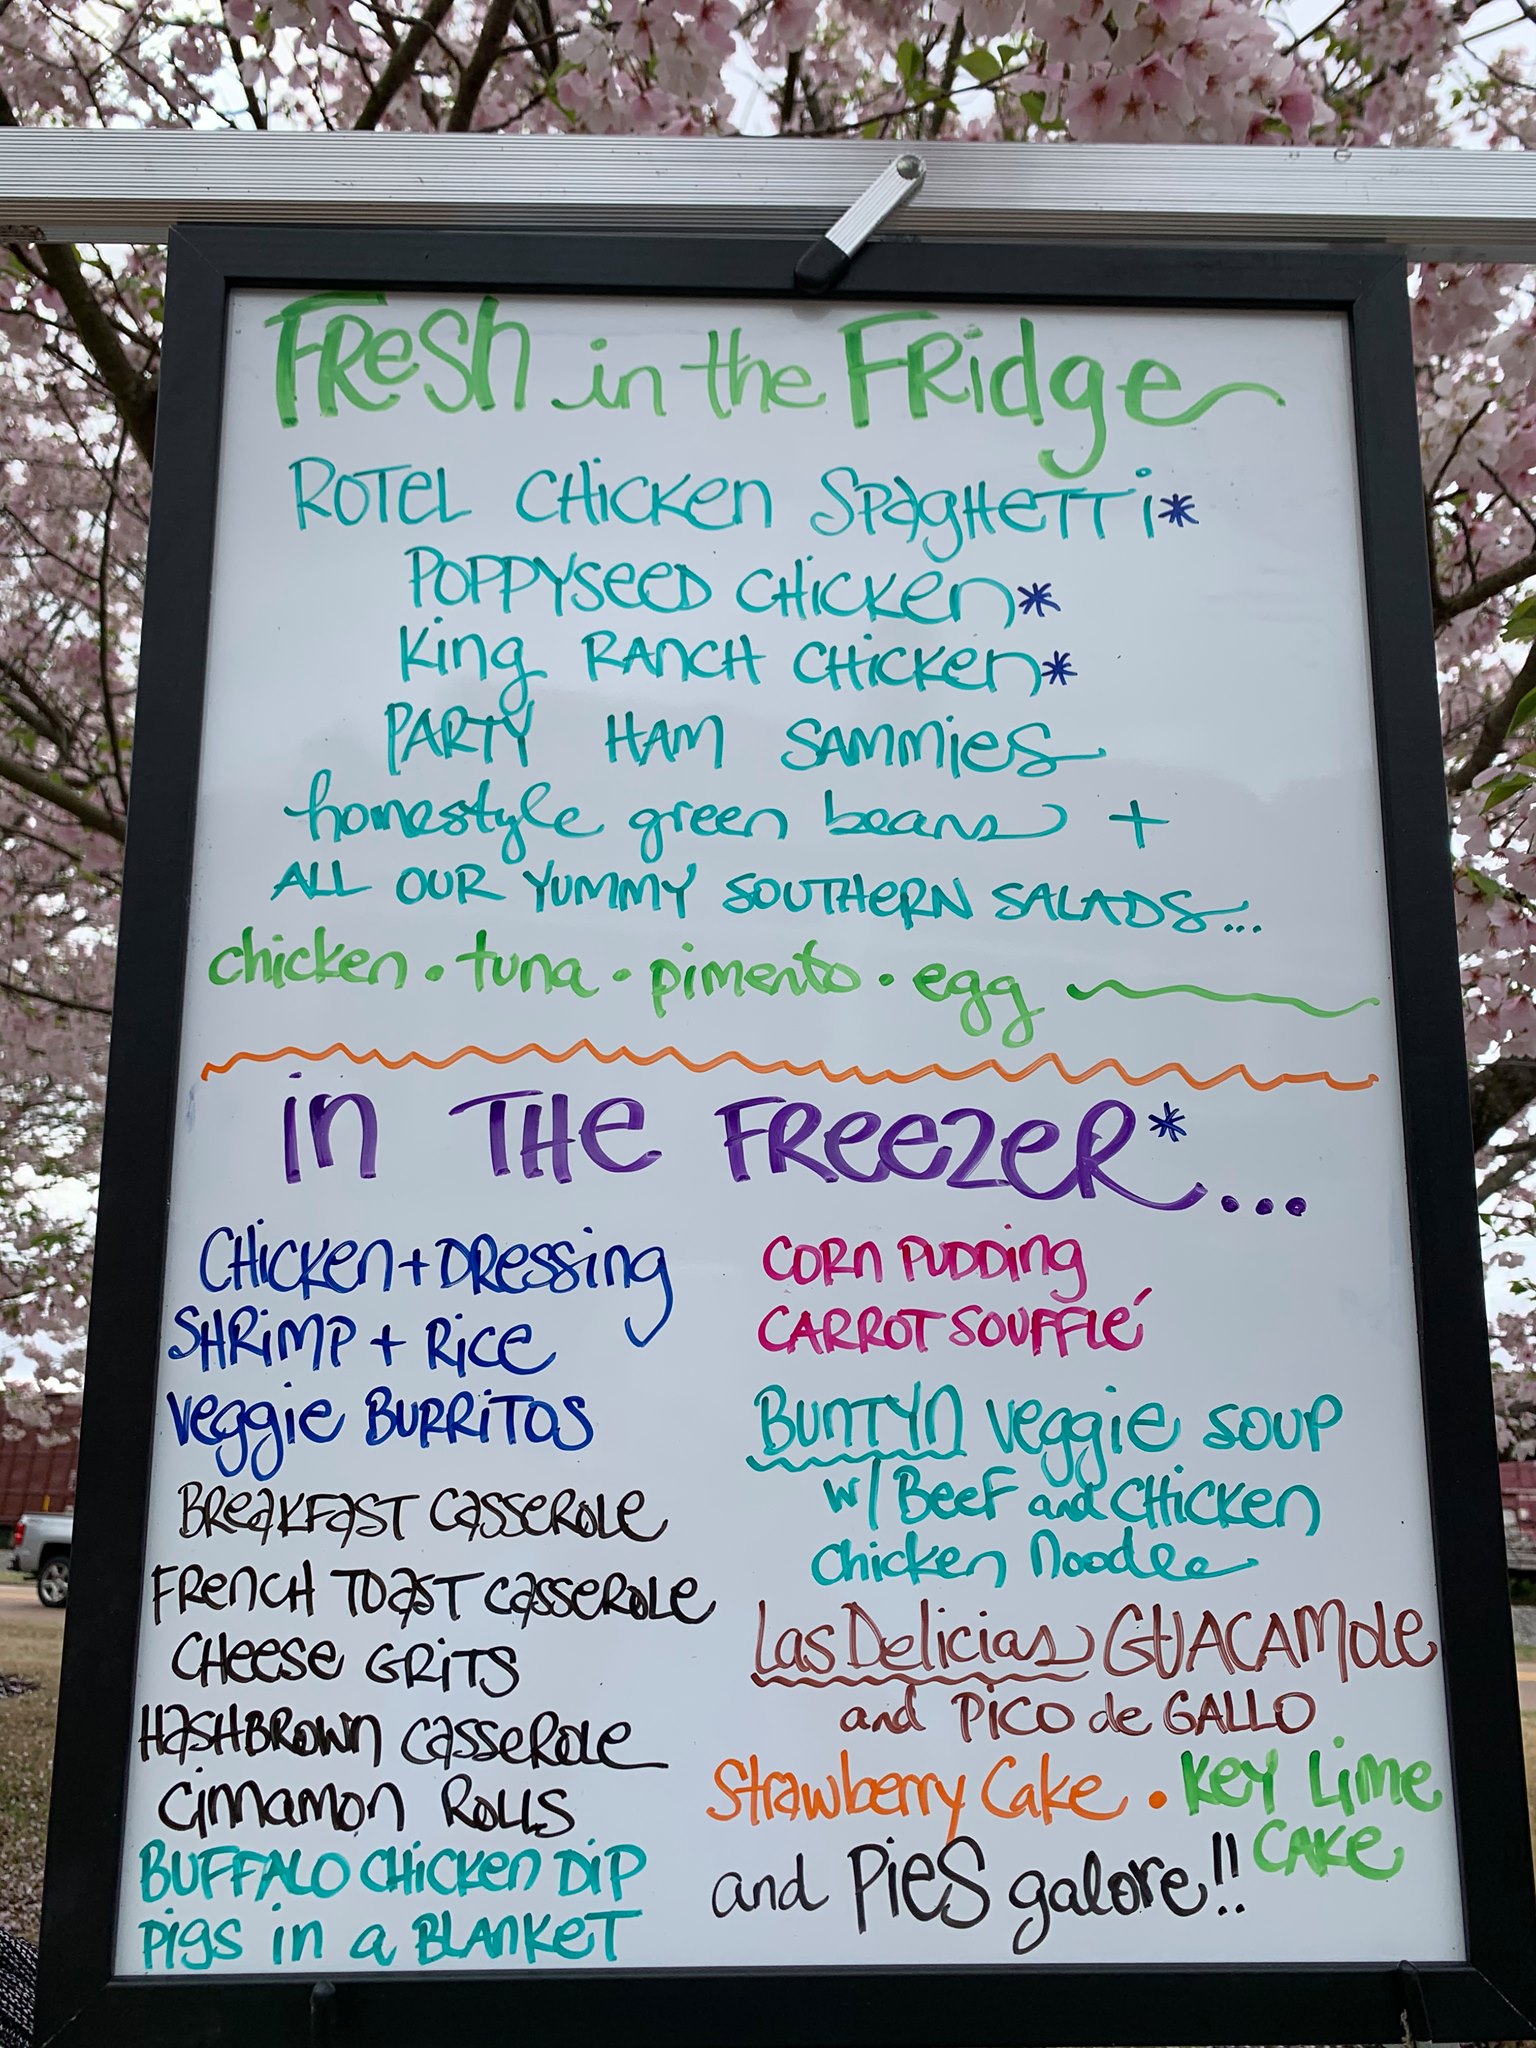 Fresh in the Fridge
ROTEL CHICKEN SPAGHETTI*
POPPYSEED CHICKEN*
King RANCH CHICKEN*
PARTY HAM SAMMIES
homestyle green beans +
ALL OUR YUMMY SOUTHERN SALADS...
chicken • tuna • pimento • egg
in THE FREEZER*...
CHICKEN + DRESSING
SHRIMP + RICE
Veggie BURRITOS
BREAKFAST CASSEROLE
FRENCH TOAST CASSEROLE
CHEESE GRITS
HASHBROWN CASSEROLE
Cinnamon ROLLS
BUFFALO CHICKEN DIP
PIGS in a BLANKET
CORN PUDDING
CARROT SOUFFLÉ
BUNTYN Veggie SOUP
w/ Beef and CHICKEN
Chicken Noodle
Las Delicias GUACAMOLE
and PICO de GALLO
Strawberry Cake • KEY LIME
CAKE
and PIES galore!!